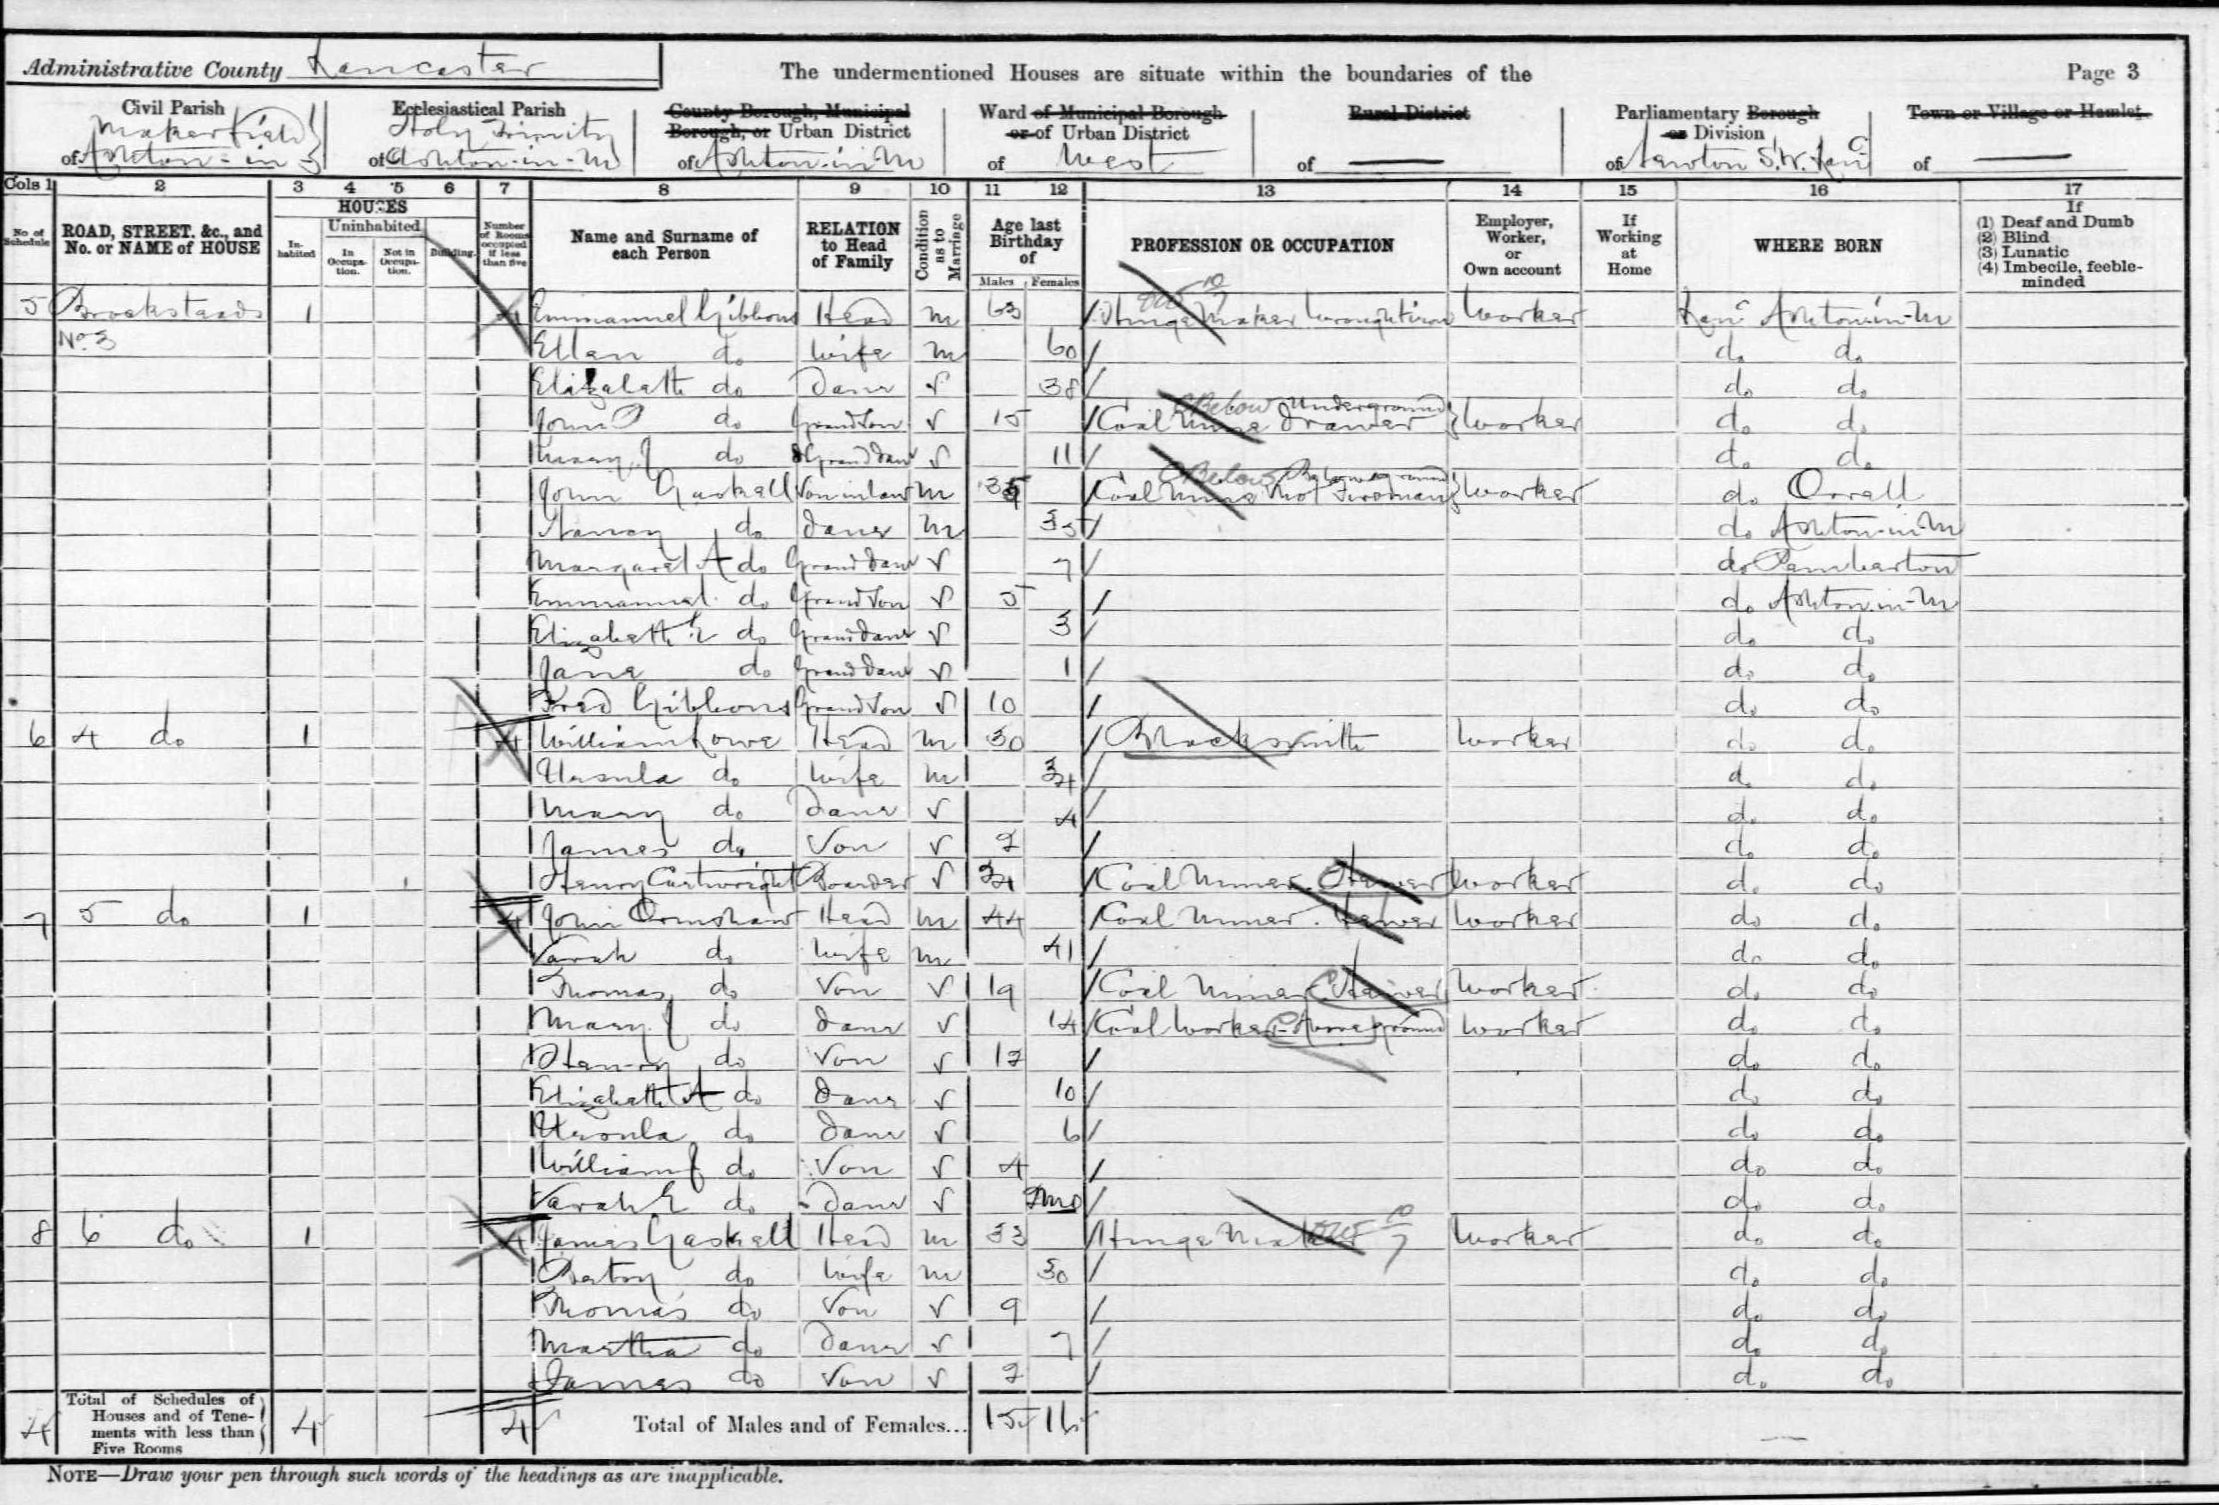 Administrative County Lancaster
The undermentioned Houses are situate within the boundaries of the
Page 3
Civil Parish of Ashton-in-Makerfield
Ecclesiastical Parish of Holy Trinity Ashton-in-M
County Borough, Municipal Borough, or Urban District of Ashton-in-M
Ward of Municipal Borough or of Urban District of West
Rural District of
Parliamentary Borough or Division of Newton S.W. Lanc
Town or Village or Hamlet of
Cols 1 2 3 4 5 6 7 8 9 10 11 12 13 14 15 16 17
No of Schedule
ROAD, STREET, &c., and No. or NAME of HOUSE
HOUSES
Inhabited
Uninhabited
In Occupation.
Not in Occupation.
Building.
Number of Rooms occupied if less than five
Name and Surname of each Person
RELATION to Head of Family
Condition as to Marriage
Age last Birthday of
Males Females
PROFESSION OR OCCUPATION
Employer, Worker, or Own account
If Working at Home
WHERE BORN
If
(1) Deaf and Dumb
(2) Blind
(3) Lunatic
(4) Imbecile, feeble-minded
5 Brookstands 1 4 Emmanuel Gibbons Head M 63 Hinge Maker Wrought iron Worker Lanc Ashton-in-M
No 3 Ellen do Wife M 60 do do
Elizabeth do Daur S 38 do do
John do Grand Son S 15 Coal Mine Drawer Underground Below Worker do do
Mary J do Grand Daur S 11 do do
John Gaskell Son in law M Coal Mine Fireman Below Worker do Orrell
Nancy do Daur M 35 do Ashton-in-M
Margaret A do Grand Daur S 7 do Pemberton
Emmanuel do Grand Son S 5 do Ashton-in-M
Elizabeth E do Grand Daur S 3 do do
Jane do Grand Daur S 1 do do
Fred Gibbons Grand Son S 10 do do
6 4 do 1 4 William Lowe Head M 30 Blacksmith Worker do do
Ursula do Wife M 34 do do
Mary do Daur S 4 do do
James do Son S 2 do do
Henry Cartwright Boarder S 34 Coal Miner. Hewer Worker do do
7 5 do 1 4 John Ormshaw Head M 44 Coal Miner. Hewer Worker do do
Sarah do Wife M 41 do do
Thomas do Son S 19 Coal Miner Worker do do
Mary J do Daur S 14 Coal Worker Aboveground Worker do do
Henry do Son S 12 do do
Elizabeth A do Daur S 10 do do
Ursula do Daur S 6 do do
William J do Son S 4 do do
Sarah E do Daur S 2mo do do
8 6 do 1 4 James Gaskell Head M 33 Hinge Maker Worker do do
Betsy do Wife M 30 do do
Thomas do Son S 9 do do
Martha do Daur S 7 do do
James do Son S 2 do do
4 Total of Schedules of Houses and of Tenements with less than Five Rooms 4 4 Total of Males and of Females... 15 16
NOTE—Draw your pen through such words of the headings as are inapplicable.